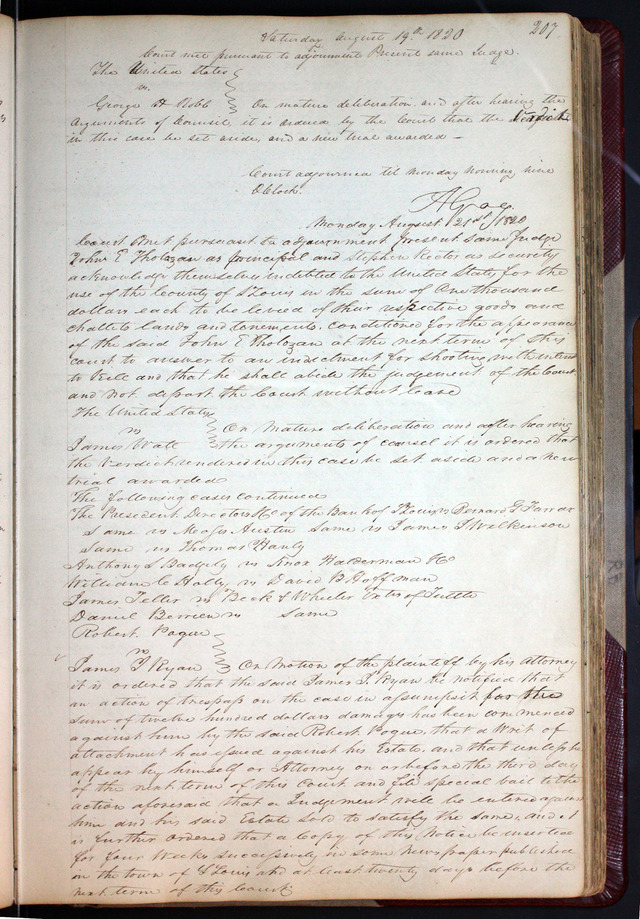 207
Saturday August 19th 1820
Court met pursuant to adjournment Present same Judge.
The United States
vs.
George H Robb On mature deliberation and after hearing the
arguments of Counsel, it is ordered by the Court that the Verdict
in this case be set aside, and a new trial awarded —
Court adjourned til monday morning nine
OClock.
Monday August 21st 1820
Court met pursuant to adjournment present same Judge
John E Tholozan as principal and Stephen Rector as security
acknowledge themselves indebted to the United States for the
use of the County of St Louis in the sum of One thousand
dollars each to be levied of their respective goods and
chattels lands and tenements, conditioned for the appearance
of the said John E Tholozan at the next term of this
court to answer to an indictment for shooting with intent
to kill and that he shall abide the judgement of the Court
and not depart the Court without leave
The United States
vs
James Watt On mature deliberation and after hearing
the arguments of counsel it is ordered that
the verdict rendered in this case be set aside and a new
trial awarded
The following cases continued
The President Directors &c of the Bank of St Louis vs Bernard G Farrar
Same vs Moses Austin Same vs James I Wilkinson
Same vs Thomas Hanly
Anthony S Badgly vs Knox Halderman &c
William C Holly vs David B Hoffman
James Teller vs Beck & Wheeler Extrs of Tuttle
Daniel Berrien vs Same
Robert Pogue
vs
James T Ryan On Motion of the plaintiff by his attorney
it is ordered that the said James T. Ryan be notified that
an action of trespass on the case in assumpsit for the
sum of twelve hundred dollars damages has been commenced
against him by the said Robert Pogue, that a Writ of
attachment has issued against his Estate, and that unless he
appear by himself or Attorney on or before the third day
of the next term of this Court and file special bail to the
action aforesaid that a Judgement will be entered against
him and his said Estate sold to satisfy the same, and it
is further ordered that a Copy of this Notice be inserted
for four weeks successively in some newspaper published
in the town of St Louis and at least twenty days before the
next term of this Court